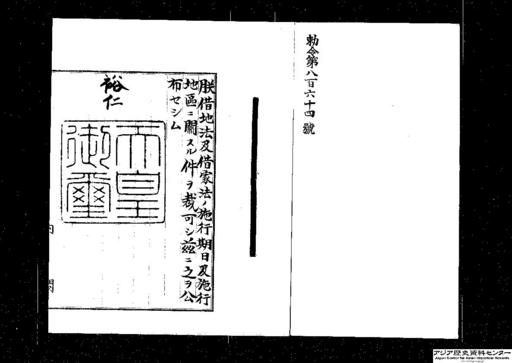 勅令第八百六十四號
朕借地法及借家法ノ施行期日及施行
地區ニ關スル件ヲ裁可シ茲ニ之ヲ公
布セシム
裕仁
天皇
御璽
内閣
アジア歴史資料センター
Japan Center for Asian Historical Records